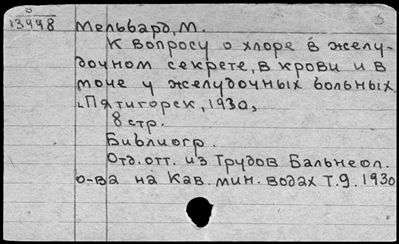 13448 Мельвард, М.
К вопросу о хлоре в желу-
дочном секрете, в крови и в
моче у желудочных больных.
Пятигорск, 1930,
8 стр.
Библиогр.
Отд. отт. из Трудов Бальнеол.
о-ва на Кав. мин. водах Т.9. 1930